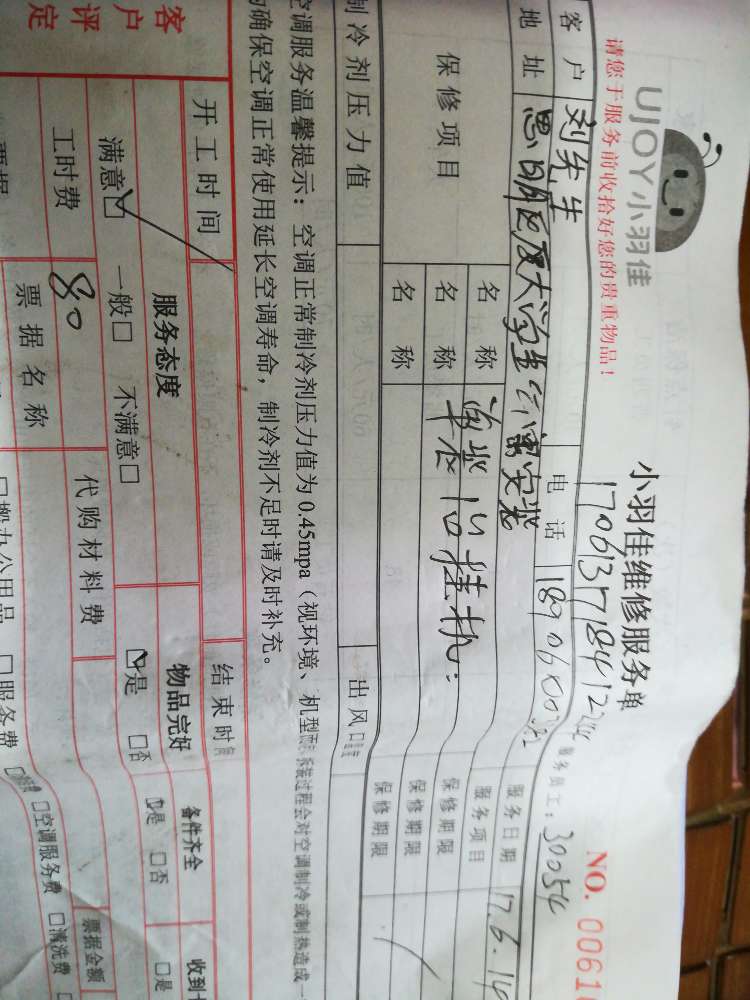 UJOY小羽佳
小羽佳维修服务单
NO. 0061
请您于服务前收拾好您的贵重物品!
服务员工: 30054
客户 刘先生 电话
服务日期 17.6.14
地址 思明区厦大学生公寓安装
服务项目
保修项目
名称
保修期限
名称
保修期限
制冷剂压力值
出风口
空调服务温馨提示: 空调正常制冷剂压力值为0.45mpa(视环境、机型
系统过程会对空调制冷或制热造成一
确保空调正常使用延长空调寿命,制冷剂不足时请及时补充。
开工时间
结束时
客户评定
服务态度
物品完好
备件齐全
收到
满意☑ 一般□ 不满意□
☑是 □否
是 □否
□是
工时费 80
代购材料费
票据名称
票据金额
□办公用品 □服务费
□空调服务费 □清洗费